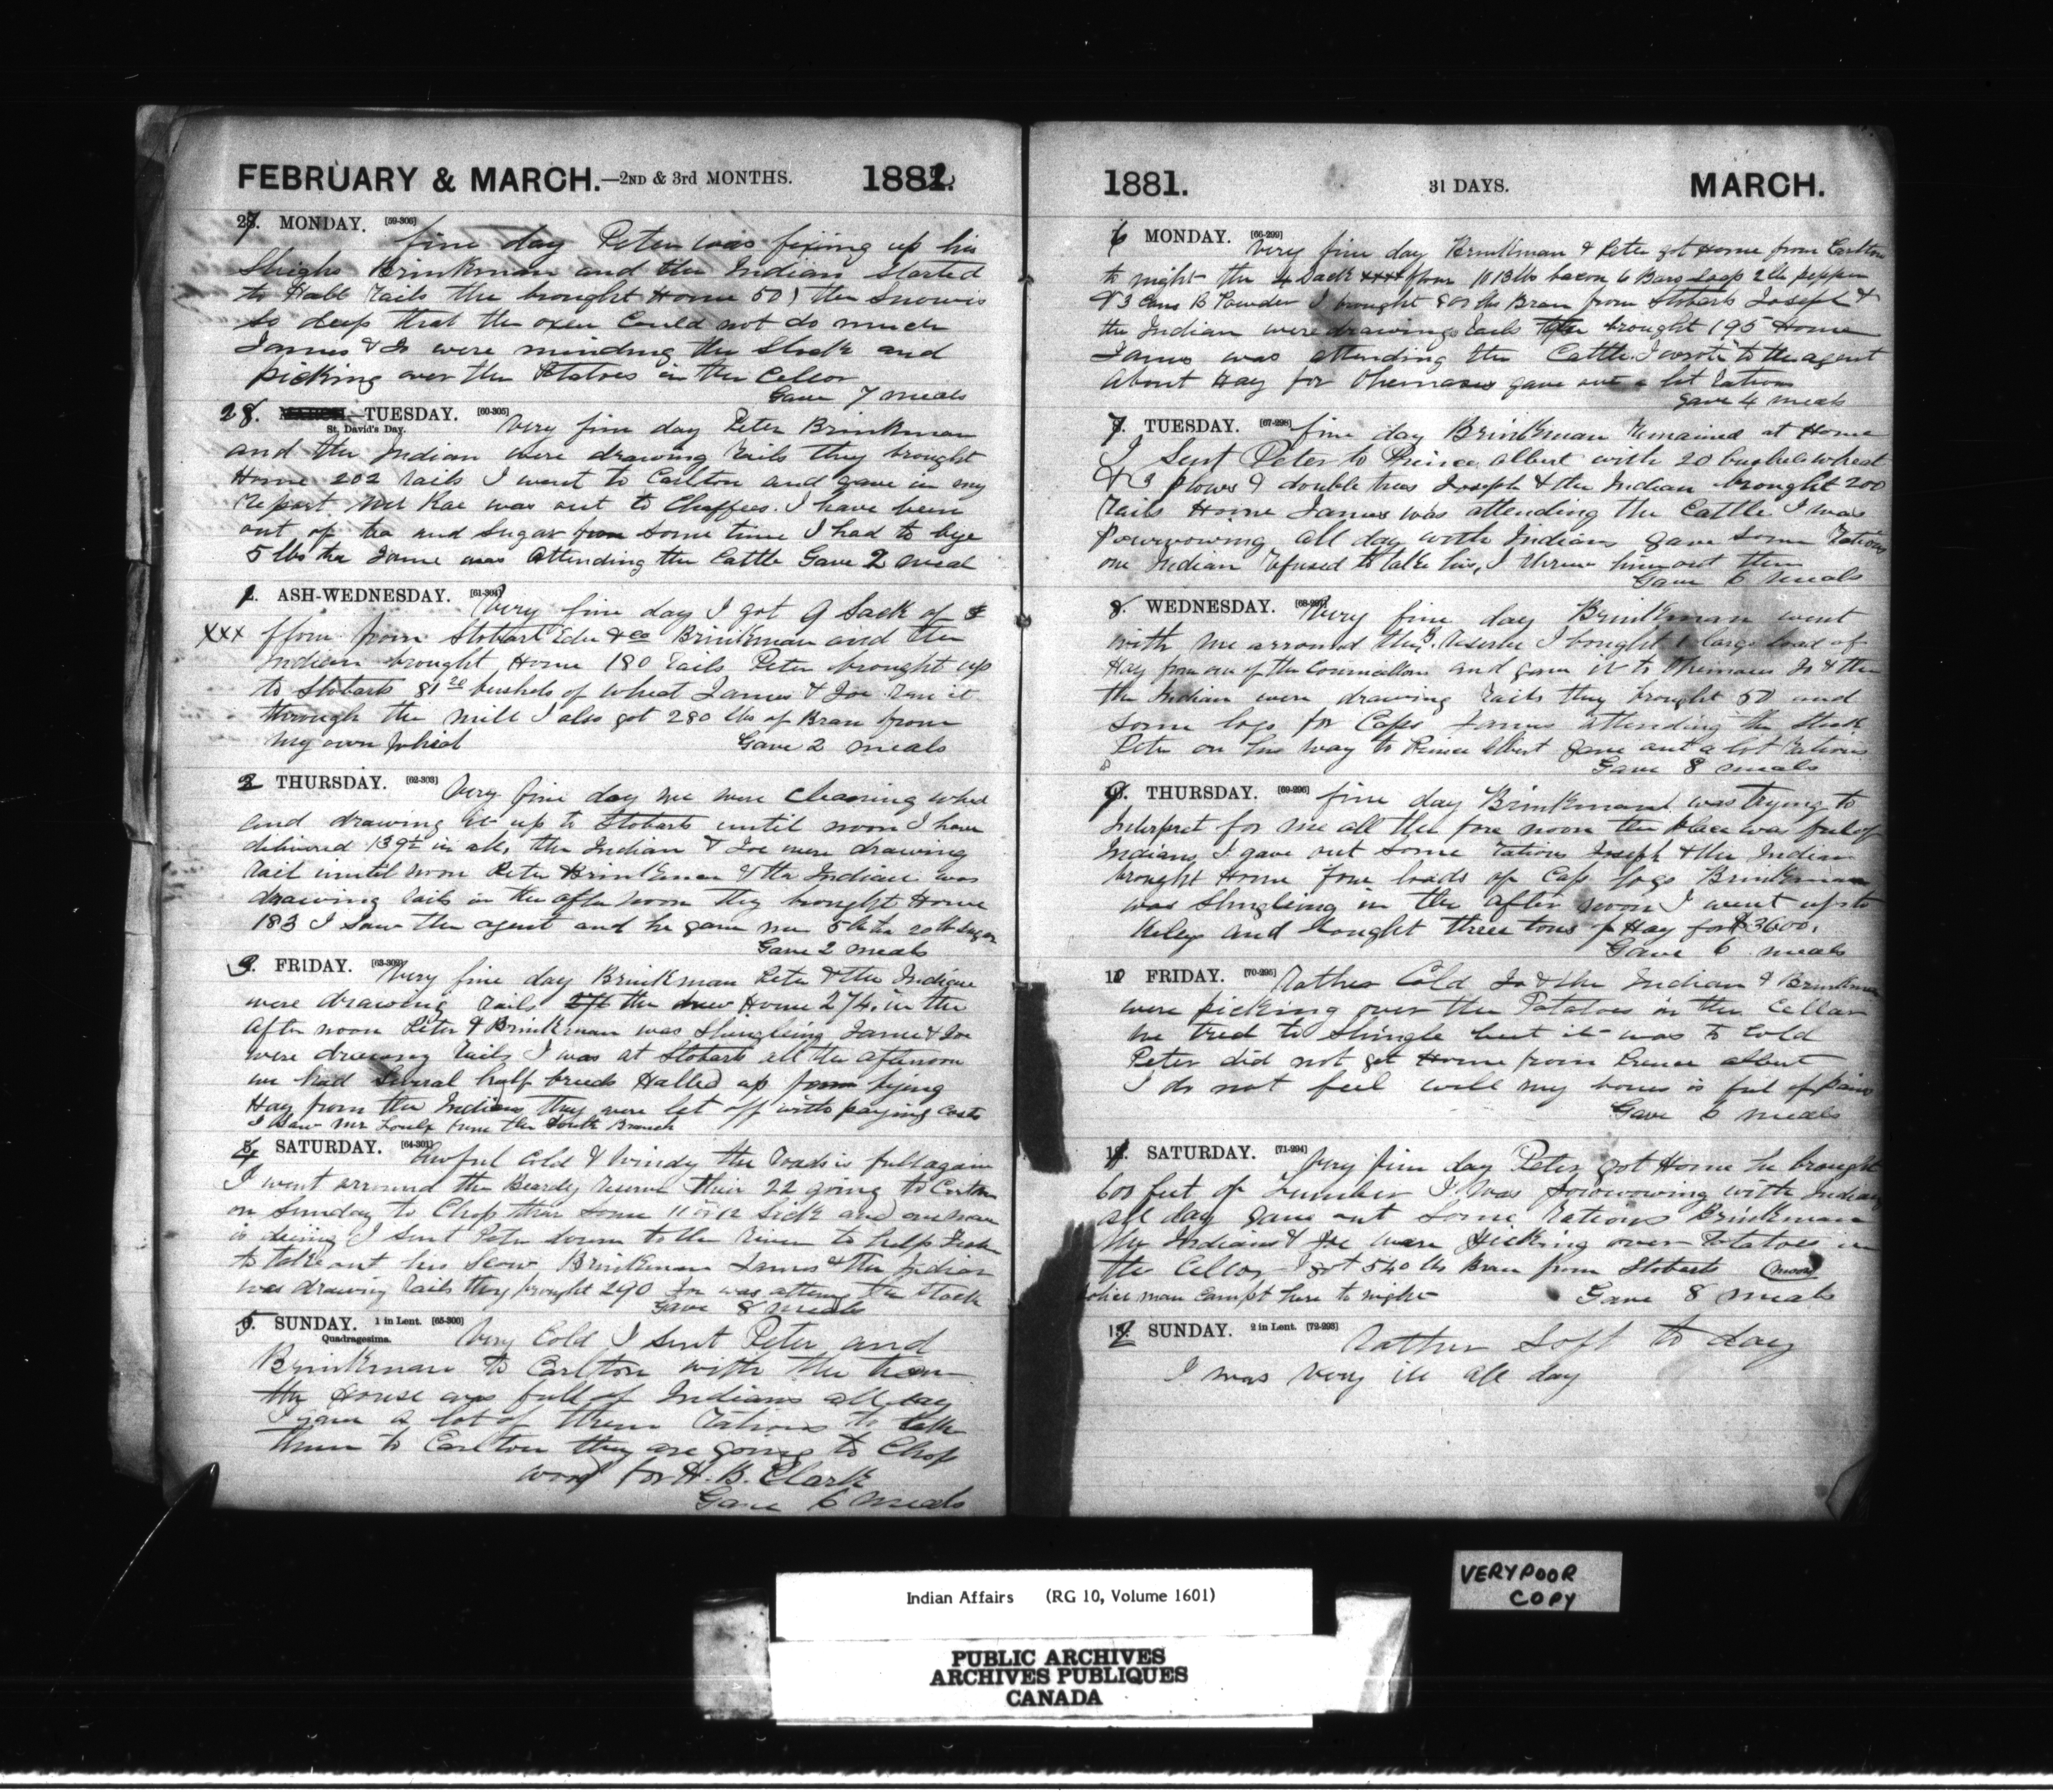 FEBRUARY & MARCH.—2ND & 3rd MONTHS. 1882.
27. MONDAY. [59-306] fine day Peter was fixing up his
Sleighs Brinkman and the Indian Started
to Hall Rails the brought Home 50 the Snow is
So deep that the oxen Could not do much
James & Jo were minding the Stock and
picking over the Potatoes in the Cellor
Gave 7 meals
28. MARCH.—TUESDAY. [60-305] Very fine day Peter Brinkman
St. David's Day.
and the Indian were drawing Rails they brought
Home 202 rails I went to Carlton and gave in my
Report Mr Rae was out to Chaffees. I have been
out of tea and Sugar from Some time I had to bye
5 lbs tea Jame was Attending the Cattle Gave 2 meal
1. ASH-WEDNESDAY. [61-304] Very fine day I got 9 Sack of
XXX flour from Stobart Eden & co Brinkman and the
Indian brought Home 180 rails Peter brought up
to Stobarts 81 20 bushels of wheat James & Joe ran it
through the mill I also got 280 lbs of Bran from
my own wheat Gave 2 meals
2 THURSDAY. [62-303] Very fine day we were Cleaning wheat
and drawing it up to Stobarts until noon I have
delivered 139 in all, the Indian & Joe were drawing
rail until noon Peter Brinkman & the Indian was
drawing rails in the after noon they brought Home
183 I Saw the agent and he gave me 5 lb tea 20 lb Sugar
Gave 2 meals
3. FRIDAY. [63-302] Very fine day Brinkman Peter & the Indian
were drawing rails the drew Home 274, in the
After noon Peter & Brinkman was Shingleing Jame & Joe
were drawing Rails I was at Stobarts all the afternoon
we had Several half breeds Halled up from bying
Hay from the Indians they were let off with paying Costs
I Saw Mr from the South Branch
4 SATURDAY. [64-301] Awful Cold & Windy the roads is full again
I went arround the Beardy reserve their 22 going to Carlton
on Sunday to Chop thar Some 11 or 12 Sick and one man
is dieing I Sent Peter down to the River to help
to take out his Scow Brinkman James & the Indian
was drawing rails they brought 290 Joe was atteng the Stock
Gave 8 meals
5. SUNDAY. 1 in Lent. [65-300] Very Cold I Sent Peter and
Quadragesima.
Brinkman to Carlton with the team
the House was full of Indians all day
I gave a lot of them rations to take
them to Carlton they are going to Chop
wood for H. B. Clark
Gave 6 meals
1881. 31 DAYS. MARCH.
6 MONDAY. [66-299] Very fine day Brinkman & Peter got Home from Carlton
to night the 4 Sack XXXX flour 1013 lbs bacon 6 Bars Soap 2 lb pepper
& 3 Cans B Powder I brought 800 lbs Bran from Stobarts Joseph &
the Indian were drawing Rails brought 195 Home
James was attending the Cattle. I wrote to the agent
About Hay for gave out a lot Rations
Gave 4 meals
7. TUESDAY. [67-298] fine day Brinkman Remained at Home
I Sent Peter to Prince Albert with 20 bushels wheat
& 3 plows & double trees Joseph & the Indian brought 200
rails Home James was attending the Cattle I was
Powwowing all day with Indians gave Some Rations
one Indian refused to talke his, I threw him out then
Gave 6 meals
8. WEDNESDAY. [68-297] Very fine day Brinkman went
with me arround the B. reserve I bought 1 large load of
Hay from one of the Councillors and gave it to Jo & the
the Indian were drawing rails they brought 50 and
Some logs for Caps James attending the Stock
Peter on his way to Prince Albert gave out a lot rations
Gave 8 meals
9. THURSDAY. [69-296] fine day Brinkman was trying to
Interpret for me all the fore noon the place was ful of
Indians I gave out Some rations Joseph & the Indian
brought Home four loads of Cap logs Brinkman
was Shingleing in the after noon I went up to
Kiley and bought three tons of Hay for $3600.
Gave 6 meals
10 FRIDAY. [70-295] Rather Cold Jo & the Indian & Brinkman
were picking over the Potatoes in the Cellar
we tred to Shingle but it was to Cold
Peter did not get Home from Prince albert
I do not feel well my bones is ful of pains
Gave 6 meals
11. SATURDAY. [71-294] Very fine day Peter got Home he brought
600 feet of Lumber I was powwowing with Indians
all day gave out Some rations Brinkman
the Indians & Joe were picking over Potatoes in
the Cellor I got 540 lbs Bran from Stobarts
police man Campt here to night Gave 8 meals
12 SUNDAY. 2 in Lent. [72-293] Rather Soft to day
I was very ill all day
VERY POOR
COPY
Indian Affairs (RG 10, Volume 1601)
PUBLIC ARCHIVES
ARCHIVES PUBLIQUES
CANADA